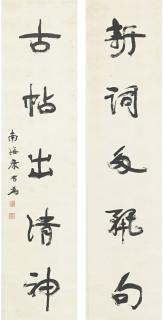 新詞多麗句
古帖出清神
南海康有為